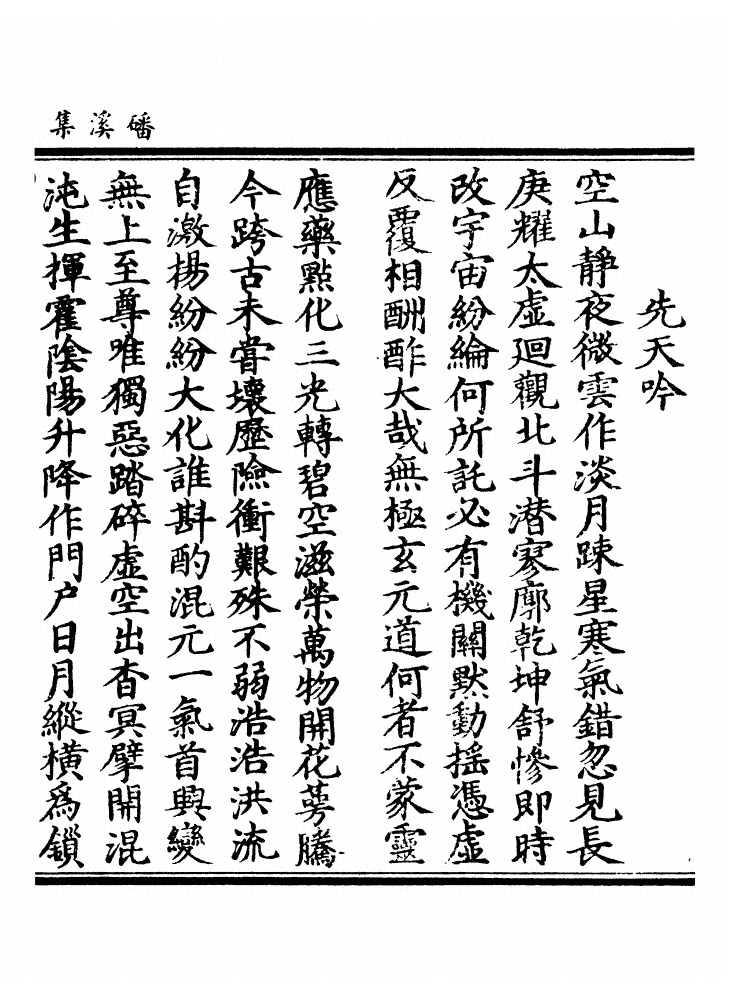 磻溪集
先天吟
空山靜夜微雲作淡月踈星寒氣錯忽見長
庚耀太虛迴觀北斗潜寥廓乾坤舒慘即時
改宇宙紛綸何所託必有機關默動摇憑虛
反覆相酬酢大哉無極玄元道何者不蒙靈
應藥點化三光轉碧空滋榮萬物開花萼騰
今跨古未嘗壞歷險衝艱殊不弱浩浩洪流
自激揚紛紛大化誰斟酌混元一氣首興變
無上至尊唯獨惡踏碎虛空出杳冥擘開混
沌生揮霍陰陽升降作門户日月縱橫為鎖